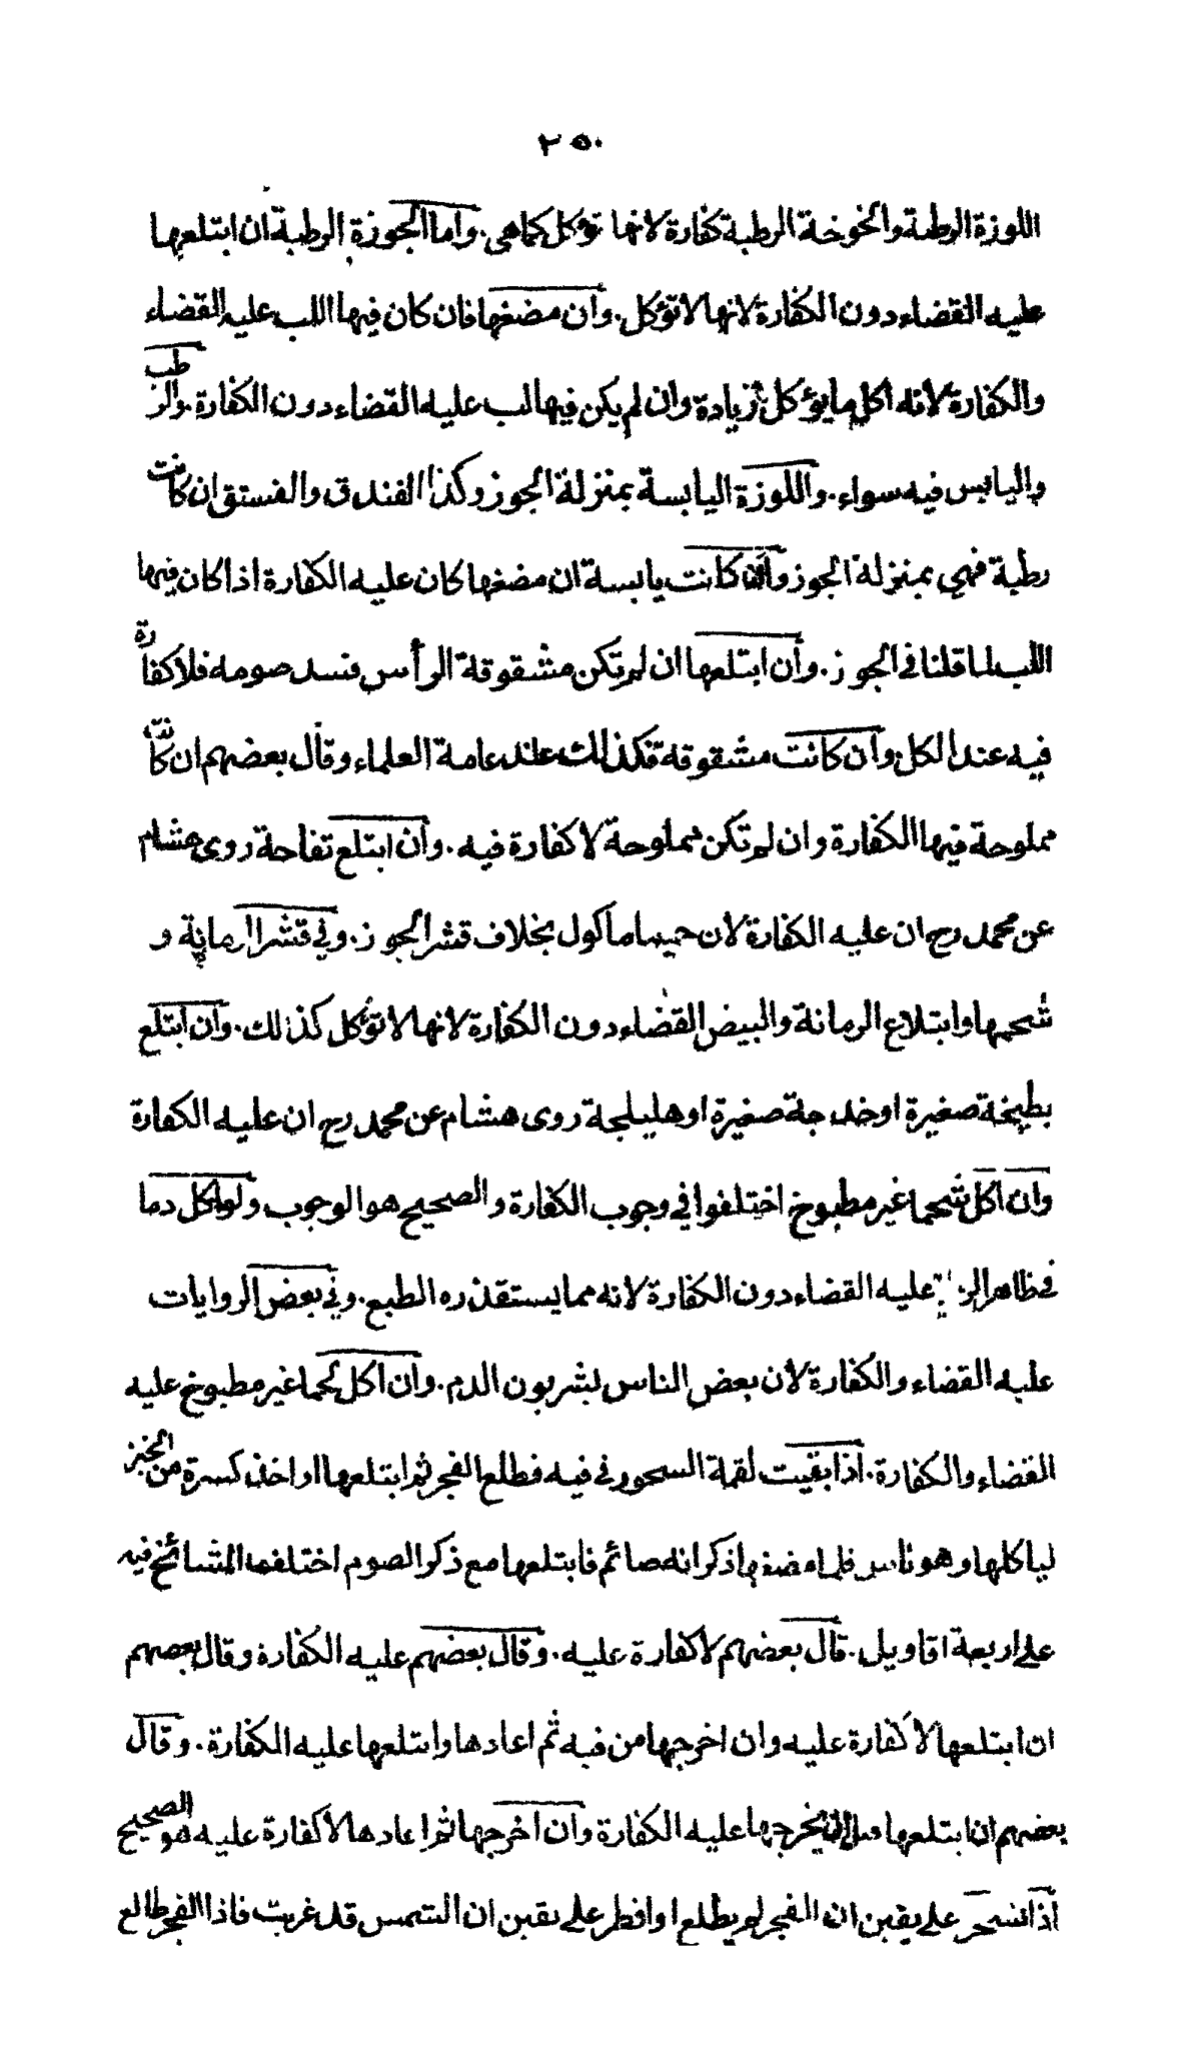 ٢٥٠
اللوزة الرطبة والخوخة الرطبة كفارة لانها تؤكل كما هي . واما الجوزة الرطبة ان ابتلعها
عليه القضاء دون الكفارة لانها لا تؤكل . وان مضغها فان كان فيها اللب عليه القضاء
والكفارة لانه اكل ما يؤكل بزيادة وان لم يكن فيها لب عليه القضاء دون الكفارة . والرطب
واليابس فيه سواء . واللوزة اليابسة بمنزلة الجوز وكذا الفندق والفستق ان كانت
رطبة فهي بمنزلة الجوز وان كانت يابسة ان مضغها كان عليه الكفارة اذا كان فيها
اللب لما قلنا في الجوز . وان ابتلعها ان لم تكن مشقوقة الرأس فسد صومه فلا كفارة
فيه عند الكل وان كانت مشقوقة فكذلك عند عامة العلماء وقال بعضهم ان كانت
مملوحة فيها الكفارة وان لم تكن مملوحة لا كفارة فيه . وان ابتلع تفاحة روى هشام
عن محمد رح ان عليه الكفارة لان جميعها مأكول بخلاف قشر الجوز . وفي قشر الرمانة و
شحمها وابتلاع الرمانة والبيض القضاء دون الكفارة لانها لا تؤكل كذلك . وان ابتلع
بطيخة صغيرة او خدجة صغيرة او هليلجة روى هشام عن محمد رح ان عليه الكفارة
وان اكل شحما غير مطبوخ اختلفوا في وجوب الكفارة والصحيح هو الوجوب ولو اكل دما
في ظاهر الرواية عليه القضاء دون الكفارة لانه مما يستقذره الطبع . وفي بعض الروايات
عليه القضاء والكفارة لان بعض الناس يشربون الدم . وان اكل لحما غير مطبوخ عليه
القضاء والكفارة . اذا بقيت لقمة السحور في فيه فطلع الفجر ثم ابتلعها او اخذ كسرة من الخبز
لياكلها وهو ناس فلما مضغها ذكر انه صائم فابتلعها مع ذكر الصوم اختلف المشائخ فيه
على اربعة اقاويل . قال بعضهم لا كفارة عليه . وقال بعضهم عليه الكفارة وقال بعضهم
ان ابتلعها لا كفارة عليه وان اخرجها من فيه ثم اعادها وابتلعها عليه الكفارة . وقال
بعضهم ان ابتلعها قبل ان يخرجها عليه الكفارة وان اخرجها ثم اعادها لا كفارة عليه هو الصحيح
اذا تسحر على يقين ان الفجر لم يطلع او افطر على يقين ان الشمس قد غربت فاذا الفجر طالع